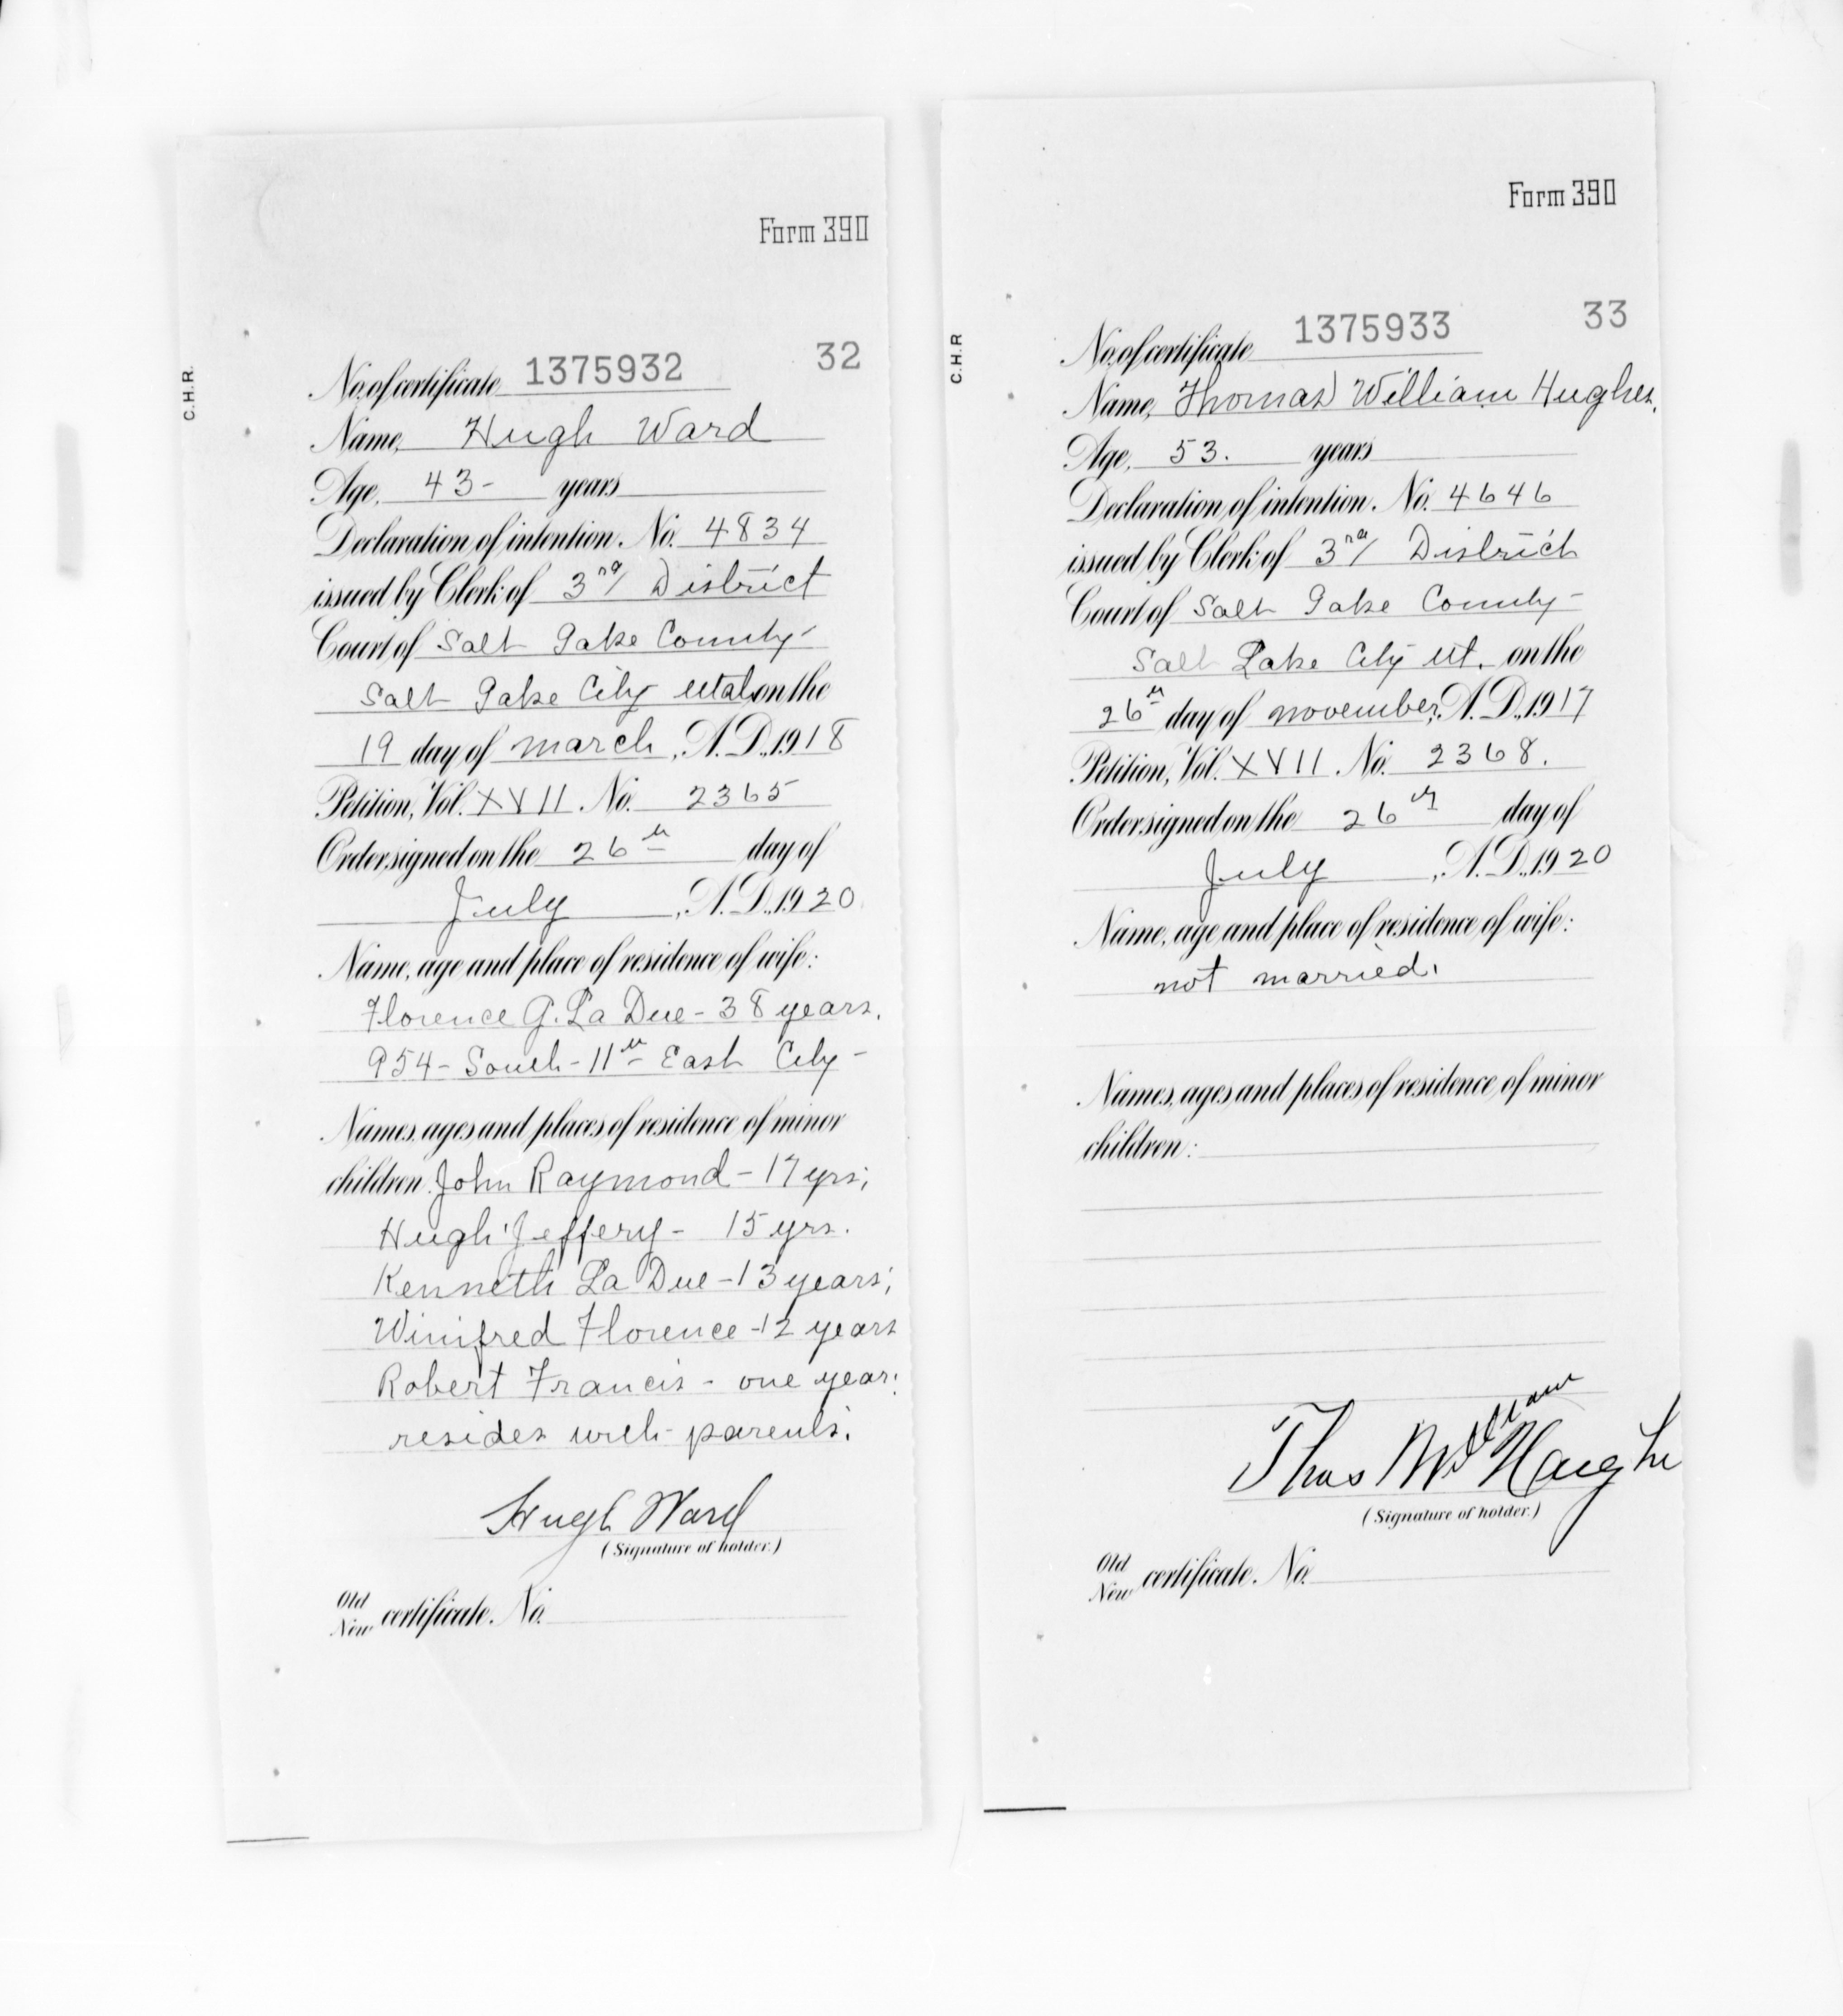 Form 390
C.H.R.
32
No. of certificate 1375932
Name, Hugh Ward
Age, 43- years
Declaration of intention. No. 4834
issued by Clerk of 3rd District
Court of Salt Lake County-
Salt Lake City Utah on the
19 day of march, A.D., 1918
Petition, Vol. XVII. No. 2365
Order signed on the 26th day of
July, A.D., 1920
Name, age and place of residence of wife:
Florence G. La Due - 38 years.
954 - South - 11th East City -
Names, ages and places of residence of minor
children. John Raymond - 17 yrs;
Hugh Jeffery - 15 yrs.
Kenneth La Due - 13 years;
Winifred Florence - 12 years
Robert Francis - one year;
resides with parents.
Hugh Ward
(Signature of holder.)
Old
New certificate. No.
Form 390
C.H.R
33
No. of certificate 1375933
Name, Thomas William Hughes.
Age, 53. years
Declaration of intention. No. 4646
issued by Clerk of 3rd District
Court of Salt Lake County -
Salt Lake City Ut. on the
26th day of november, A.D., 1917
Petition, Vol. XVII. No. 2368.
Order signed on the 26th day of
July, A.D., 1920
Name, age and place of residence of wife:
not married.
Names, ages and places of residence of minor
children:
Thos William Hughe
(Signature of holder.)
Old
New certificate. No.